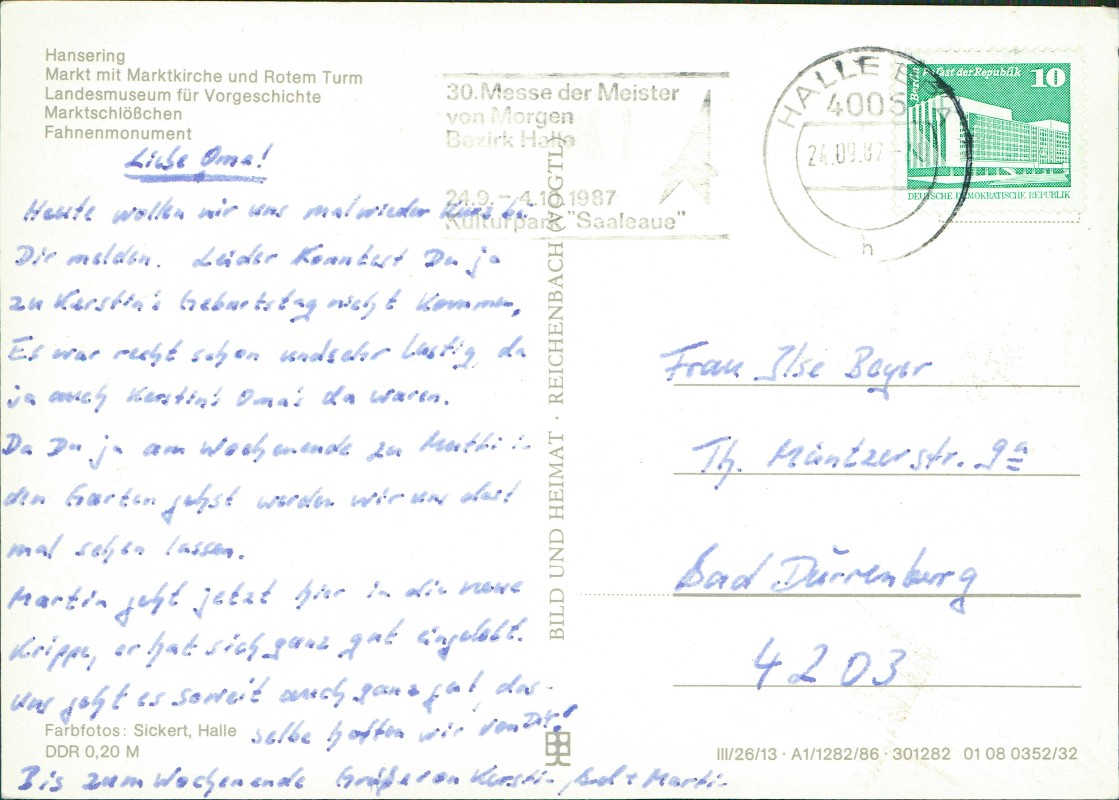 Hansering
Markt mit Marktkirche und Rotem Turm
Landesmuseum für Vorgeschichte
Marktschlößchen
Fahnenmonument
Liebe Oma!
Heute wollen wir uns mal wieder kurz bei
Dir melden. Leider konntest Du ja
zu Kerstin's Geburtstag nicht kommen,
Es war recht schön und sehr lustig, da
ja auch Kerstin's Oma's da waren.
Da Du ja am Wochenende zu Mutti in
den Garten gehst werden wir uns dort
mal sehen lassen.
Martin geht jetzt hier in die neue
Krippe, er hat sich ganz gut eingelebt.
Uns geht es soweit auch ganz gut, das-
selbe hoffen wir von Dir!
Bis zum Wochenende Grüße von Kerstin, + Martin
Farbfotos: Sickert, Halle
DDR 0,20 M
30. Messe der Meister
von Morgen
Bezirk Halle
24.9. – 4.10.1987
Kulturpark "Saaleaue"
HALLE
4005
24.09.87
h
Berlin Palast der Republik 10
DEUTSCHE DEMOKRATISCHE REPUBLIK
BILD UND HEIMAT · REICHENBACH (VOGTL)
Frau Ilse Beyer
Th. Müntzerstr. 9a
Bad Dürrenberg
4203
III/26/13 · A1/1282/86 · 301282 01 08 0352/32